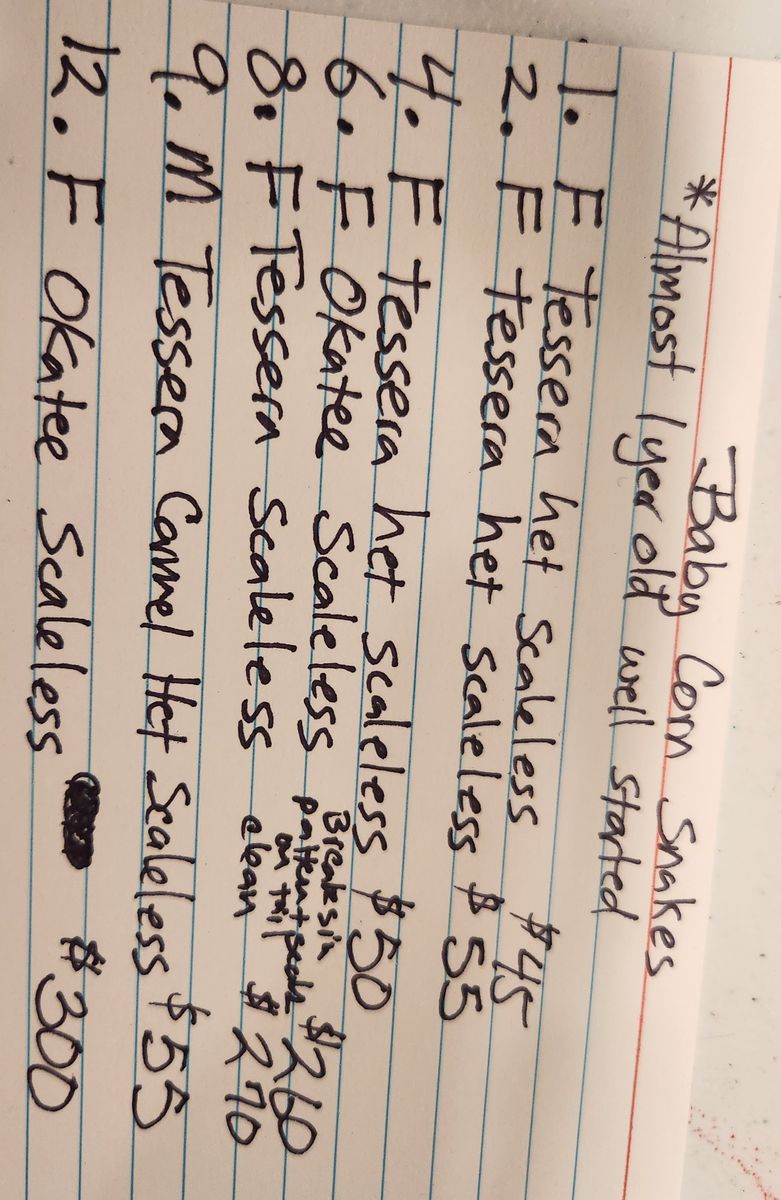 Baby Corn Snakes
*Almost 1 year old well started
1. F tessera het scaleless $45
2. F tessera het scaleless $55
4. F tessera het scaleless $50
6. F Okatee Scaleless Breaks in pattern + on tail $260
8. F Tessera Scaleless clean $270
9. M Tessera Carmel Het Scaleless $55
12. F Okatee Scaleless $300